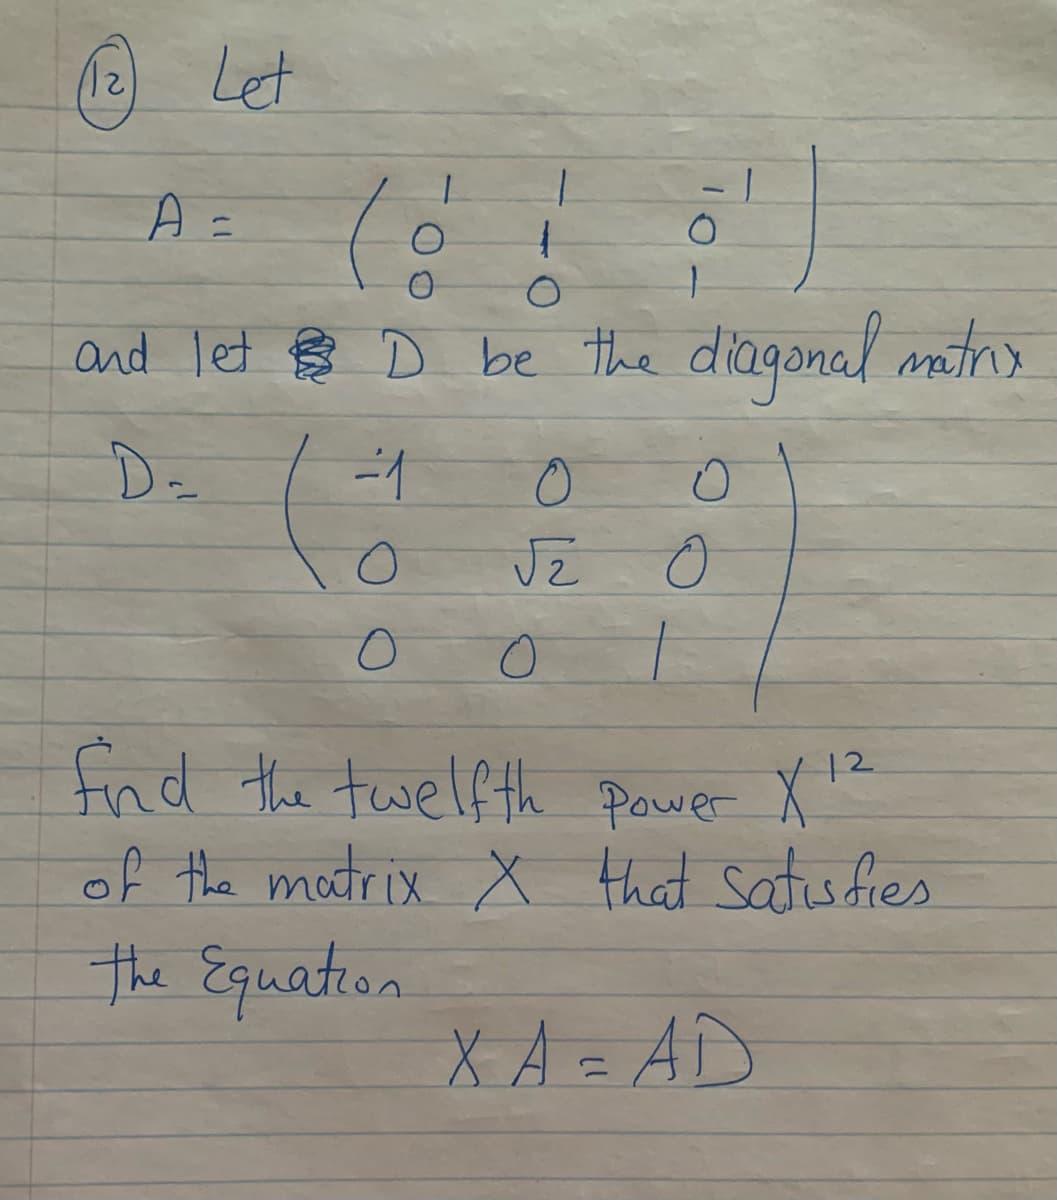 (12) Let
A = ( 1 1 -1
0 1 0
0 0 1 )
and let D be the diagonal matrix
D = ( -1 0 0
0 √2 0
0 0 1 )
find the twelfth power X¹²
of the matrix X that satisfies
the Equation
X A = A D